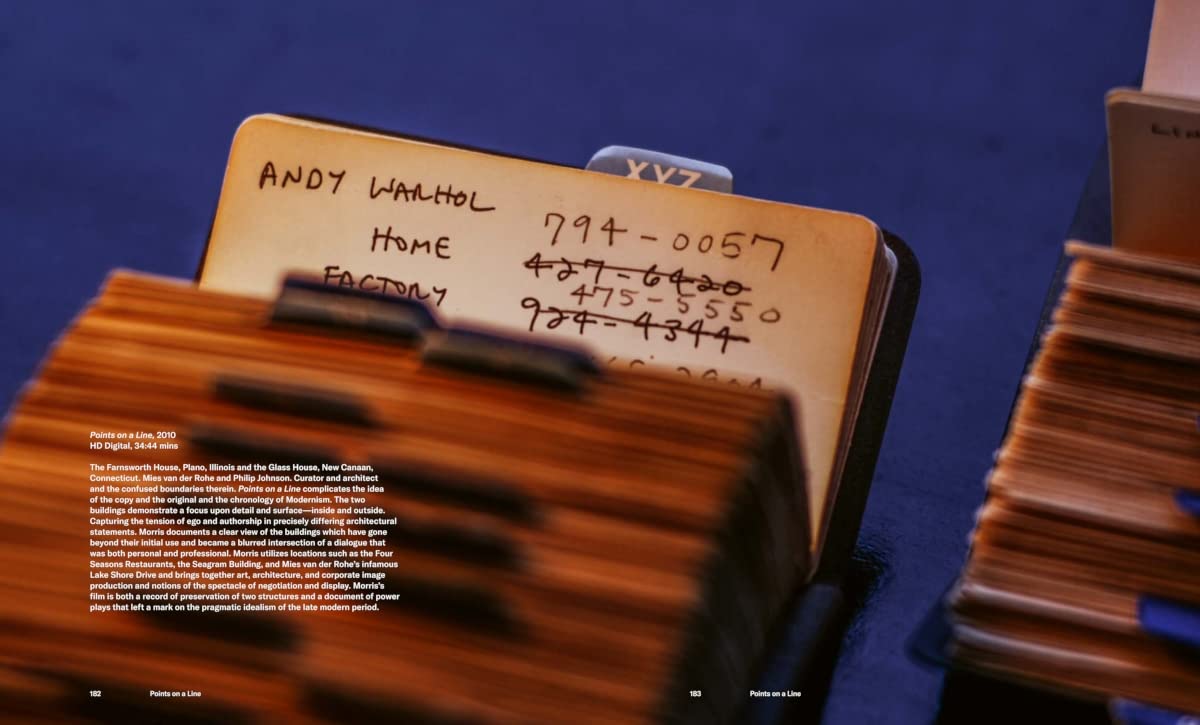 XYZ
ANDY WARHOL 794-0057
HOME 427-6420
475-5550
FACTORY 924-4344
Points on a Line, 2010
HD Digital, 34:44 mins
The Farnsworth House, Plano, Illinois and the Glass House, New Canaan,
Connecticut. Mies van der Rohe and Philip Johnson. Curator and architect
and the confused boundaries therein. Points on a Line complicates the idea
of the copy and the original and the chronology of Modernism. The two
buildings demonstrate a focus upon detail and surface—inside and outside.
Capturing the tension of ego and authorship in precisely differing architectural
statements. Morris documents a clear view of the buildings which have gone
beyond their initial use and became a blurred intersection of a dialogue that
was both personal and professional. Morris utilizes locations such as the Four
Seasons Restaurants, the Seagram Building, and Mies van der Rohe's infamous
Lake Shore Drive and brings together art, architecture, and corporate image
production and notions of the spectacle of negotiation and display. Morris's
film is both a record of preservation of two structures and a document of power
plays that left a mark on the pragmatic idealism of the late modern period.
182 Points on a Line
183 Points on a Line